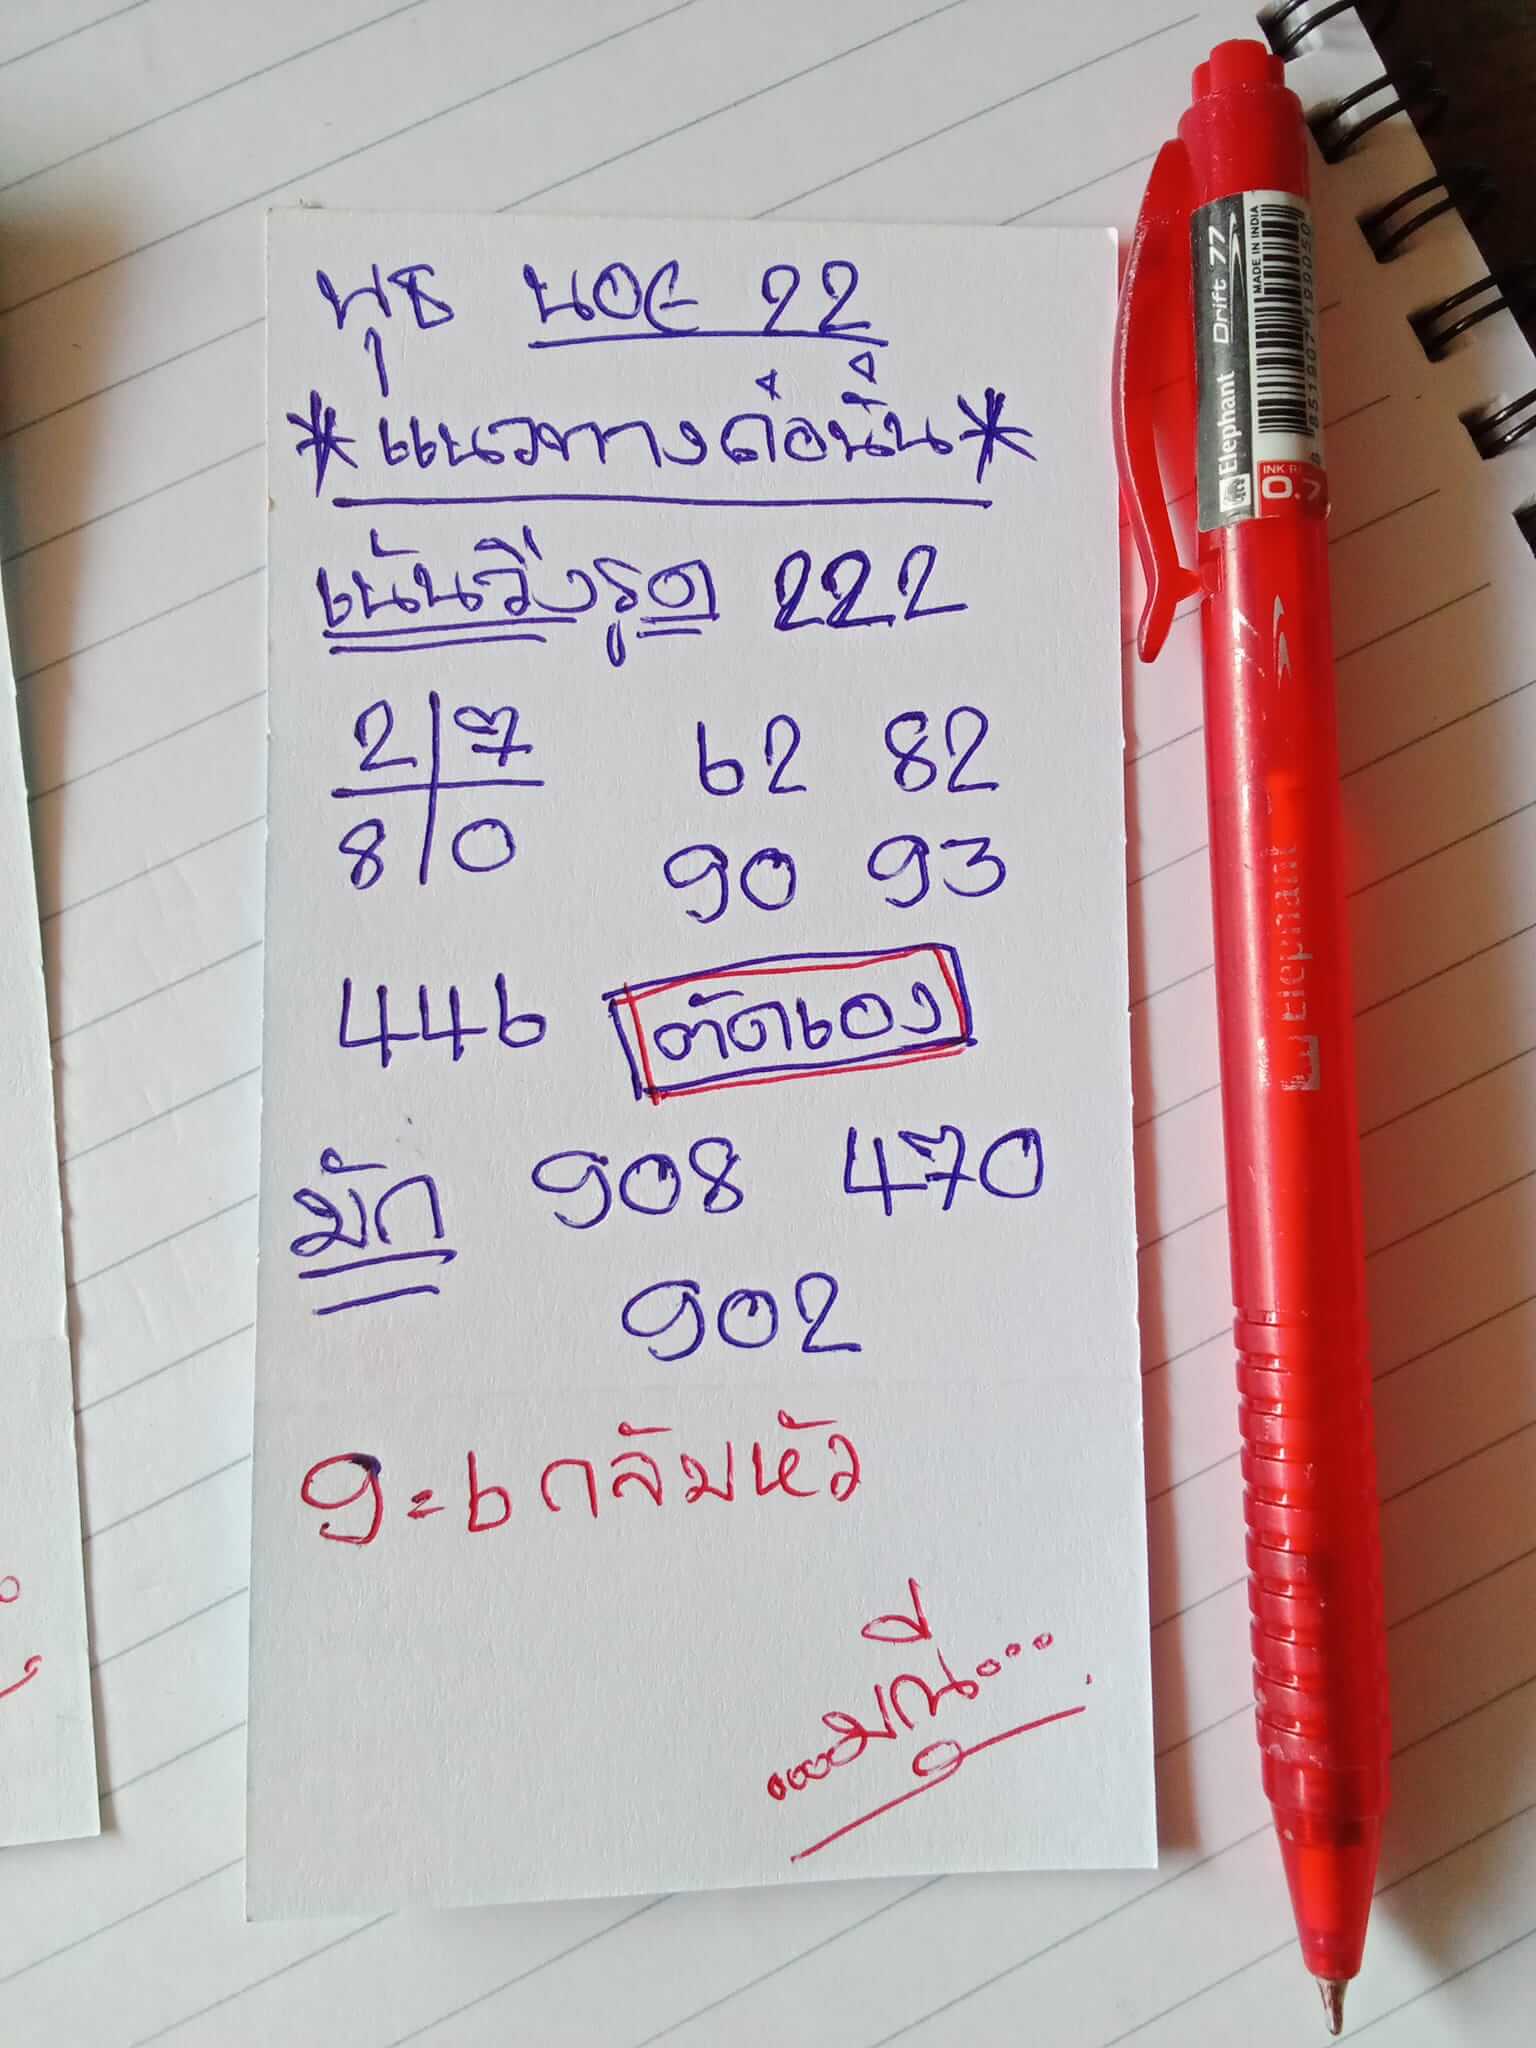 พุธ นอย 22
*แนวทางต่อนั้น*
เน้นวิ่งรูด 222
2 7 62 82
8 0 90 93
446 ตัดเอง
มัก 908 470
902
9=6 กลับหัว
....มณี...
Elephant Drift 77
MADE IN INDIA
0.7
Elephant